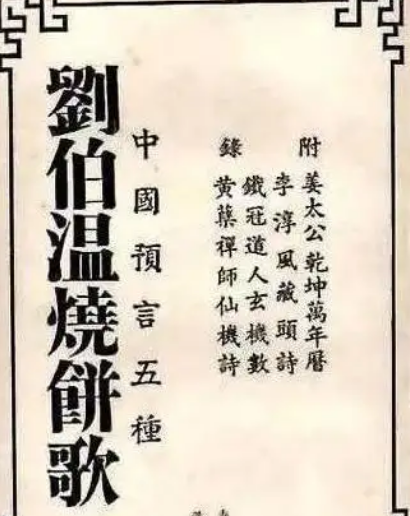 附 姜太公乾坤萬年曆
李淳風藏頭詩
鐵冠道人玄機數
錄 黄蘗禪師仙機詩
中國預言五種
劉伯温燒餅歌